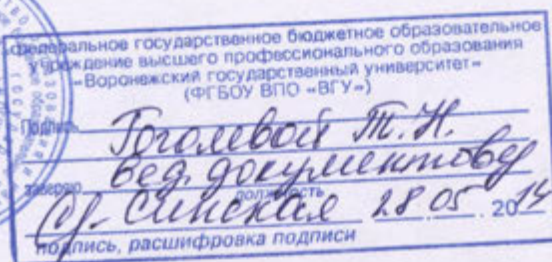 федеральное государственное бюджетное образовательное
учреждение высшего профессионального образования
«Воронежский государственный университет»
(ФГБОУ ВПО «ВГУ»)
Подпись Гоголевой Т.Н.
заверяю вед. документовед
должность
Синская 28 05 2014
подпись, расшифровка подписи